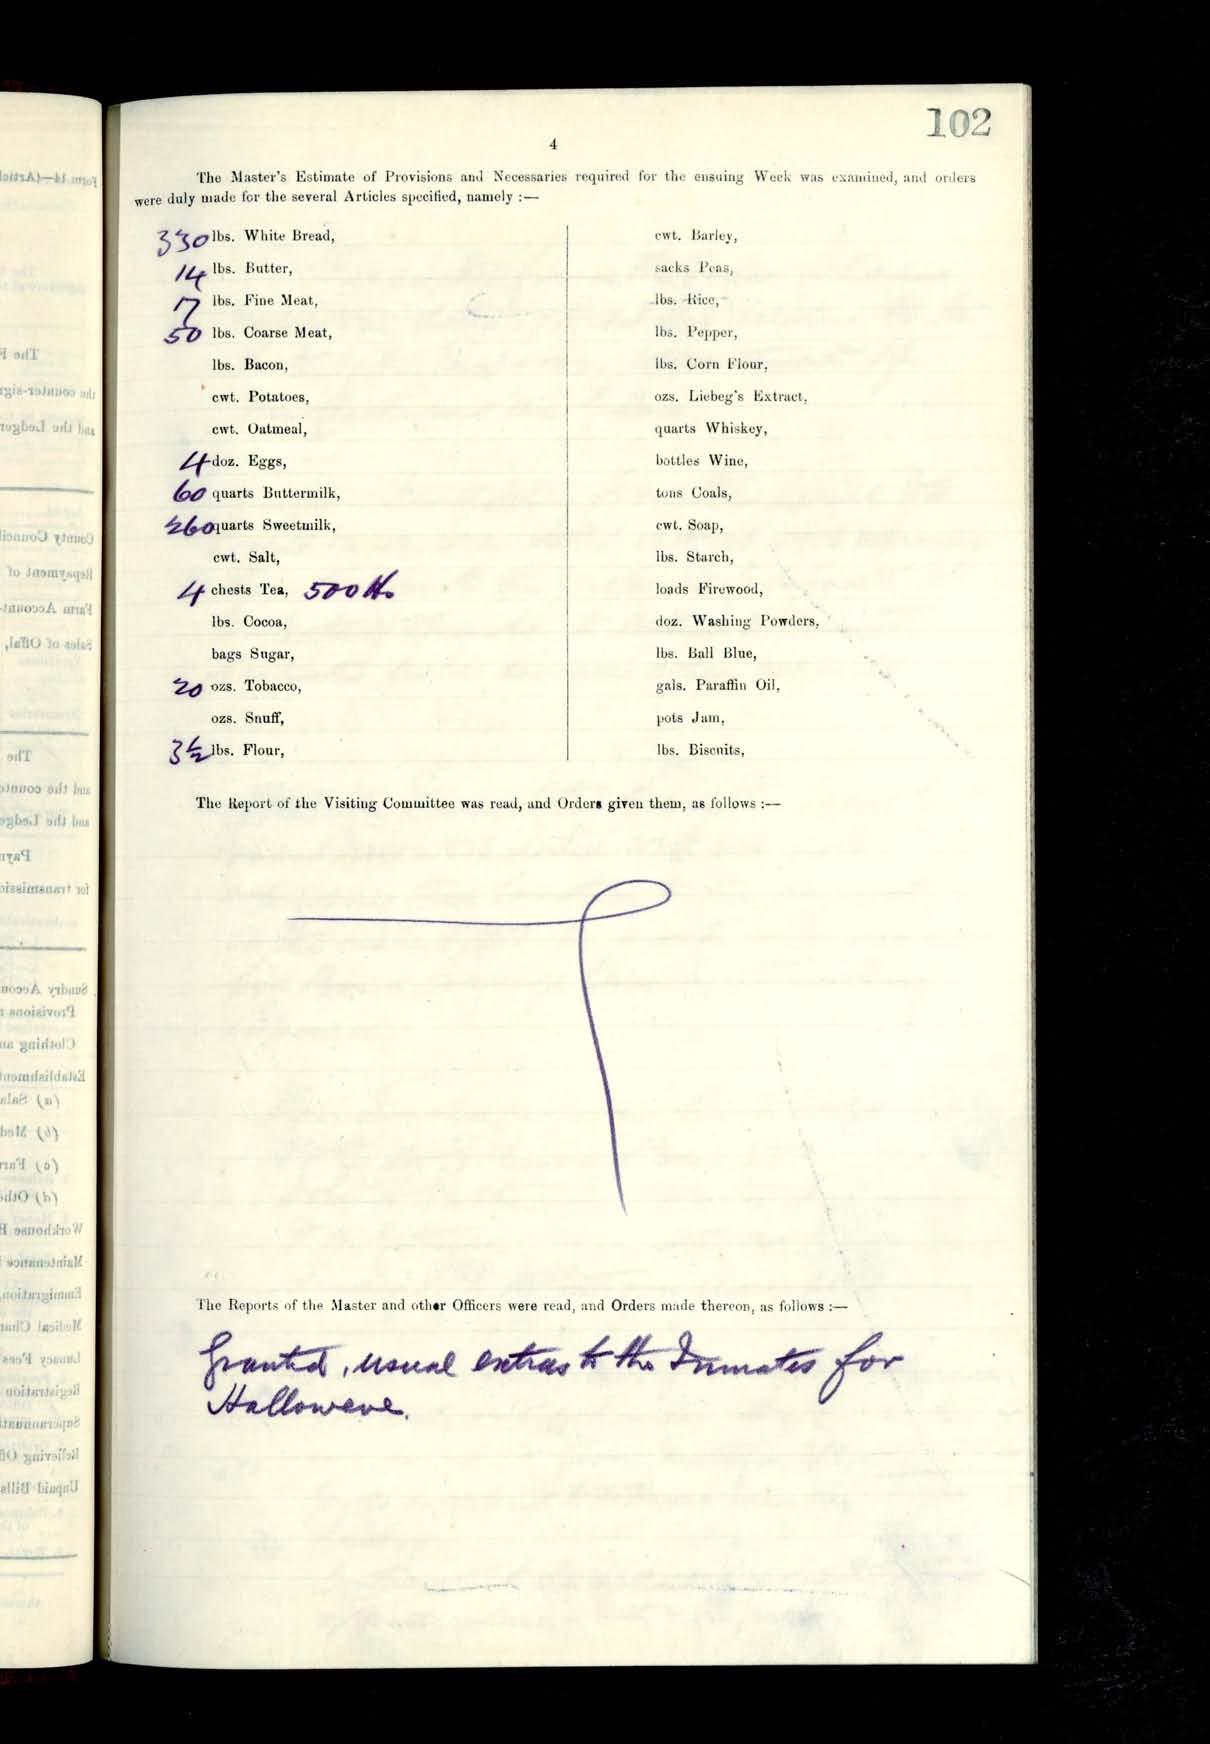 102
4
The Master's Estimate of Provisions and Necessaries required for the ensuing Week was examined, and orders
were duly made for the several Articles specified, namely :—
330 lbs. White Bread,
14 lbs. Butter,
7 lbs. Fine Meat,
50 lbs. Coarse Meat,
lbs. Bacon,
cwt. Potatoes,
cwt. Oatmeal,
4 doz. Eggs,
60 quarts Buttermilk,
260 quarts Sweetmilk,
cwt. Salt,
4 chests Tea, 500 lbs
lbs. Cocoa,
bags Sugar,
20 ozs. Tobacco,
ozs. Snuff,
3½ lbs. Flour,
cwt. Barley,
sacks Peas,
lbs. Rice,
lbs. Pepper,
lbs. Corn Flour,
ozs. Liebeg's Extract,
quarts Whiskey,
bottles Wine,
tons Coals,
cwt. Soap,
lbs. Starch,
loads Firewood,
doz. Washing Powders,
lbs. Ball Blue,
gals. Paraffin Oil,
pots Jam,
lbs. Biscuits,
The Report of the Visiting Committee was read, and Orders given them, as follows :—
The Reports of the Master and other Officers were read, and Orders made thereon, as follows :—
Granted, usual extras to the Inmates for
Halloweve.